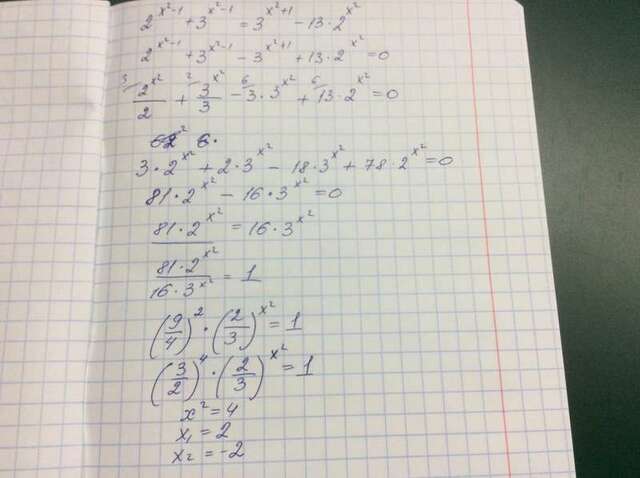 2^{x²-1} + 3^{x²-1} = 3^{x²+1} - 13·2^{x²}
2^{x²-1} + 3^{x²-1} - 3^{x²+1} + 13·2^{x²} = 0
3/ 2^{x²}/2 + 2/ 3^{x²}/3 - 6/ 3·3^{x²} + 6/ 13·2^{x²} = 0
3·2^{x²} + 2·3^{x²} - 18·3^{x²} + 78·2^{x²} = 0
81·2^{x²} - 16·3^{x²} = 0
81·2^{x²} = 16·3^{x²}
81·2^{x²}/16·3^{x²} = 1
(9/4)² · (2/3)^{x²} = 1
(3/2)⁴ · (2/3)^{x²} = 1
x² = 4
x₁ = 2
x₂ = -2